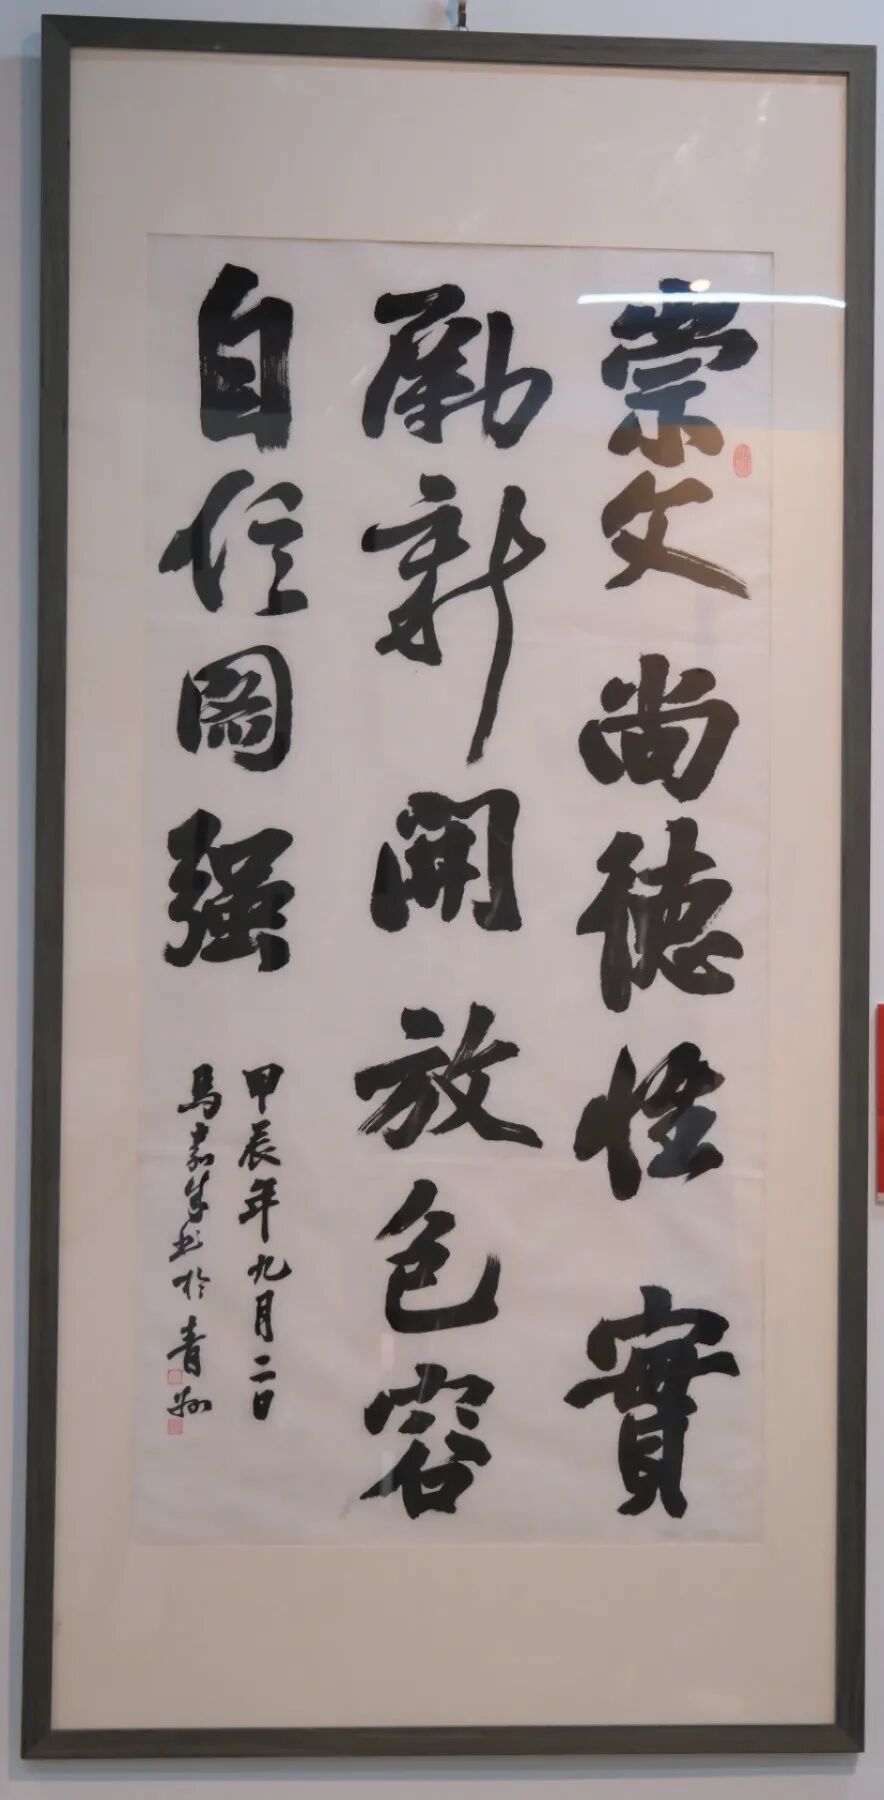 崇文尚德惟實
勵新開放包容
自信圖强
甲辰年九月二日
馬嘉书於青州